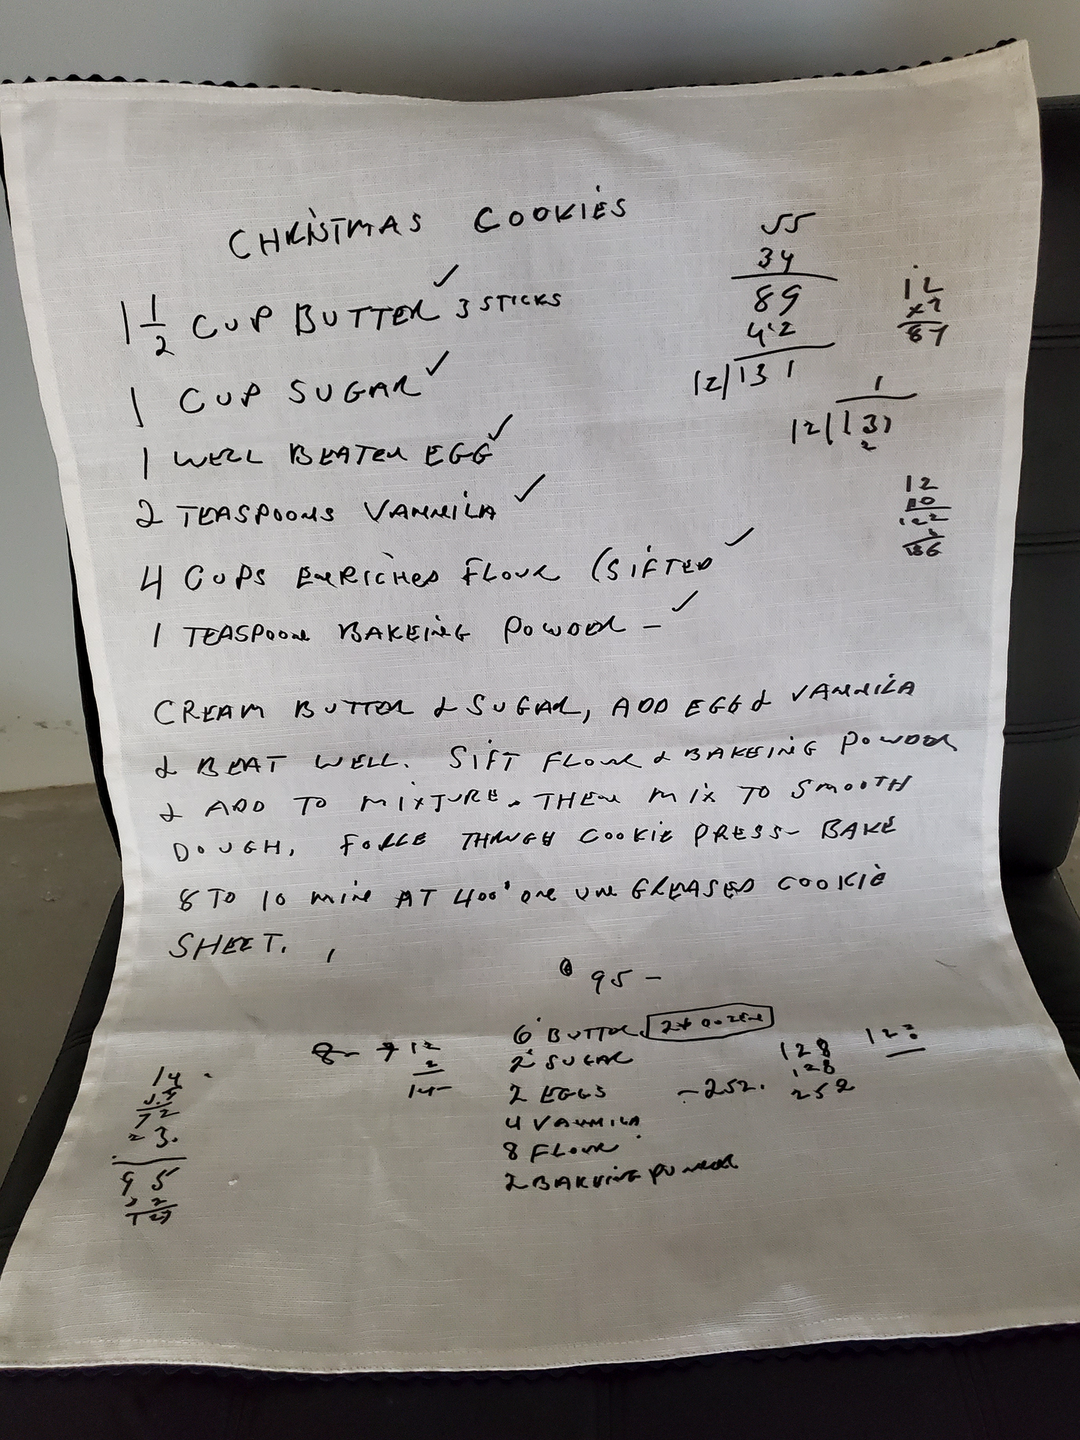 CHRISTMAS COOKIES
1 1/2 CUP BUTTER ✓ 3 STICKS
1 CUP SUGAR ✓
1 WELL BEATEN EGG ✓
2 TEASPOONS VANNILA ✓
4 CUPS ENRICHED FLOUR (SIFTED ✓
1 TEASPOON BAKEING POWDER – ✓
55
34
89
42
12/131
12
87
1
12/131
2
12
10
122
CREAM BUTTER & SUGAR, ADD EGG & VANNILA
& BEAT WELL. SIFT FLOUR & BAKEING POWDER
& ADD TO MIXTURE. THEN MIX TO SMOOTH
DOUGH. FORCE THROUGH COOKIE PRESS- BAKE
8 TO 10 MIN AT 400° ON UNGREASED COOKIE
SHEET.
95 –
6 BUTTER
2 SUGAR
2 EGGS
4 VANNILA
8 FLOUR
2 BAKEING POWDER
12
2
14
128
128
252
-252.
14
72
3.
95